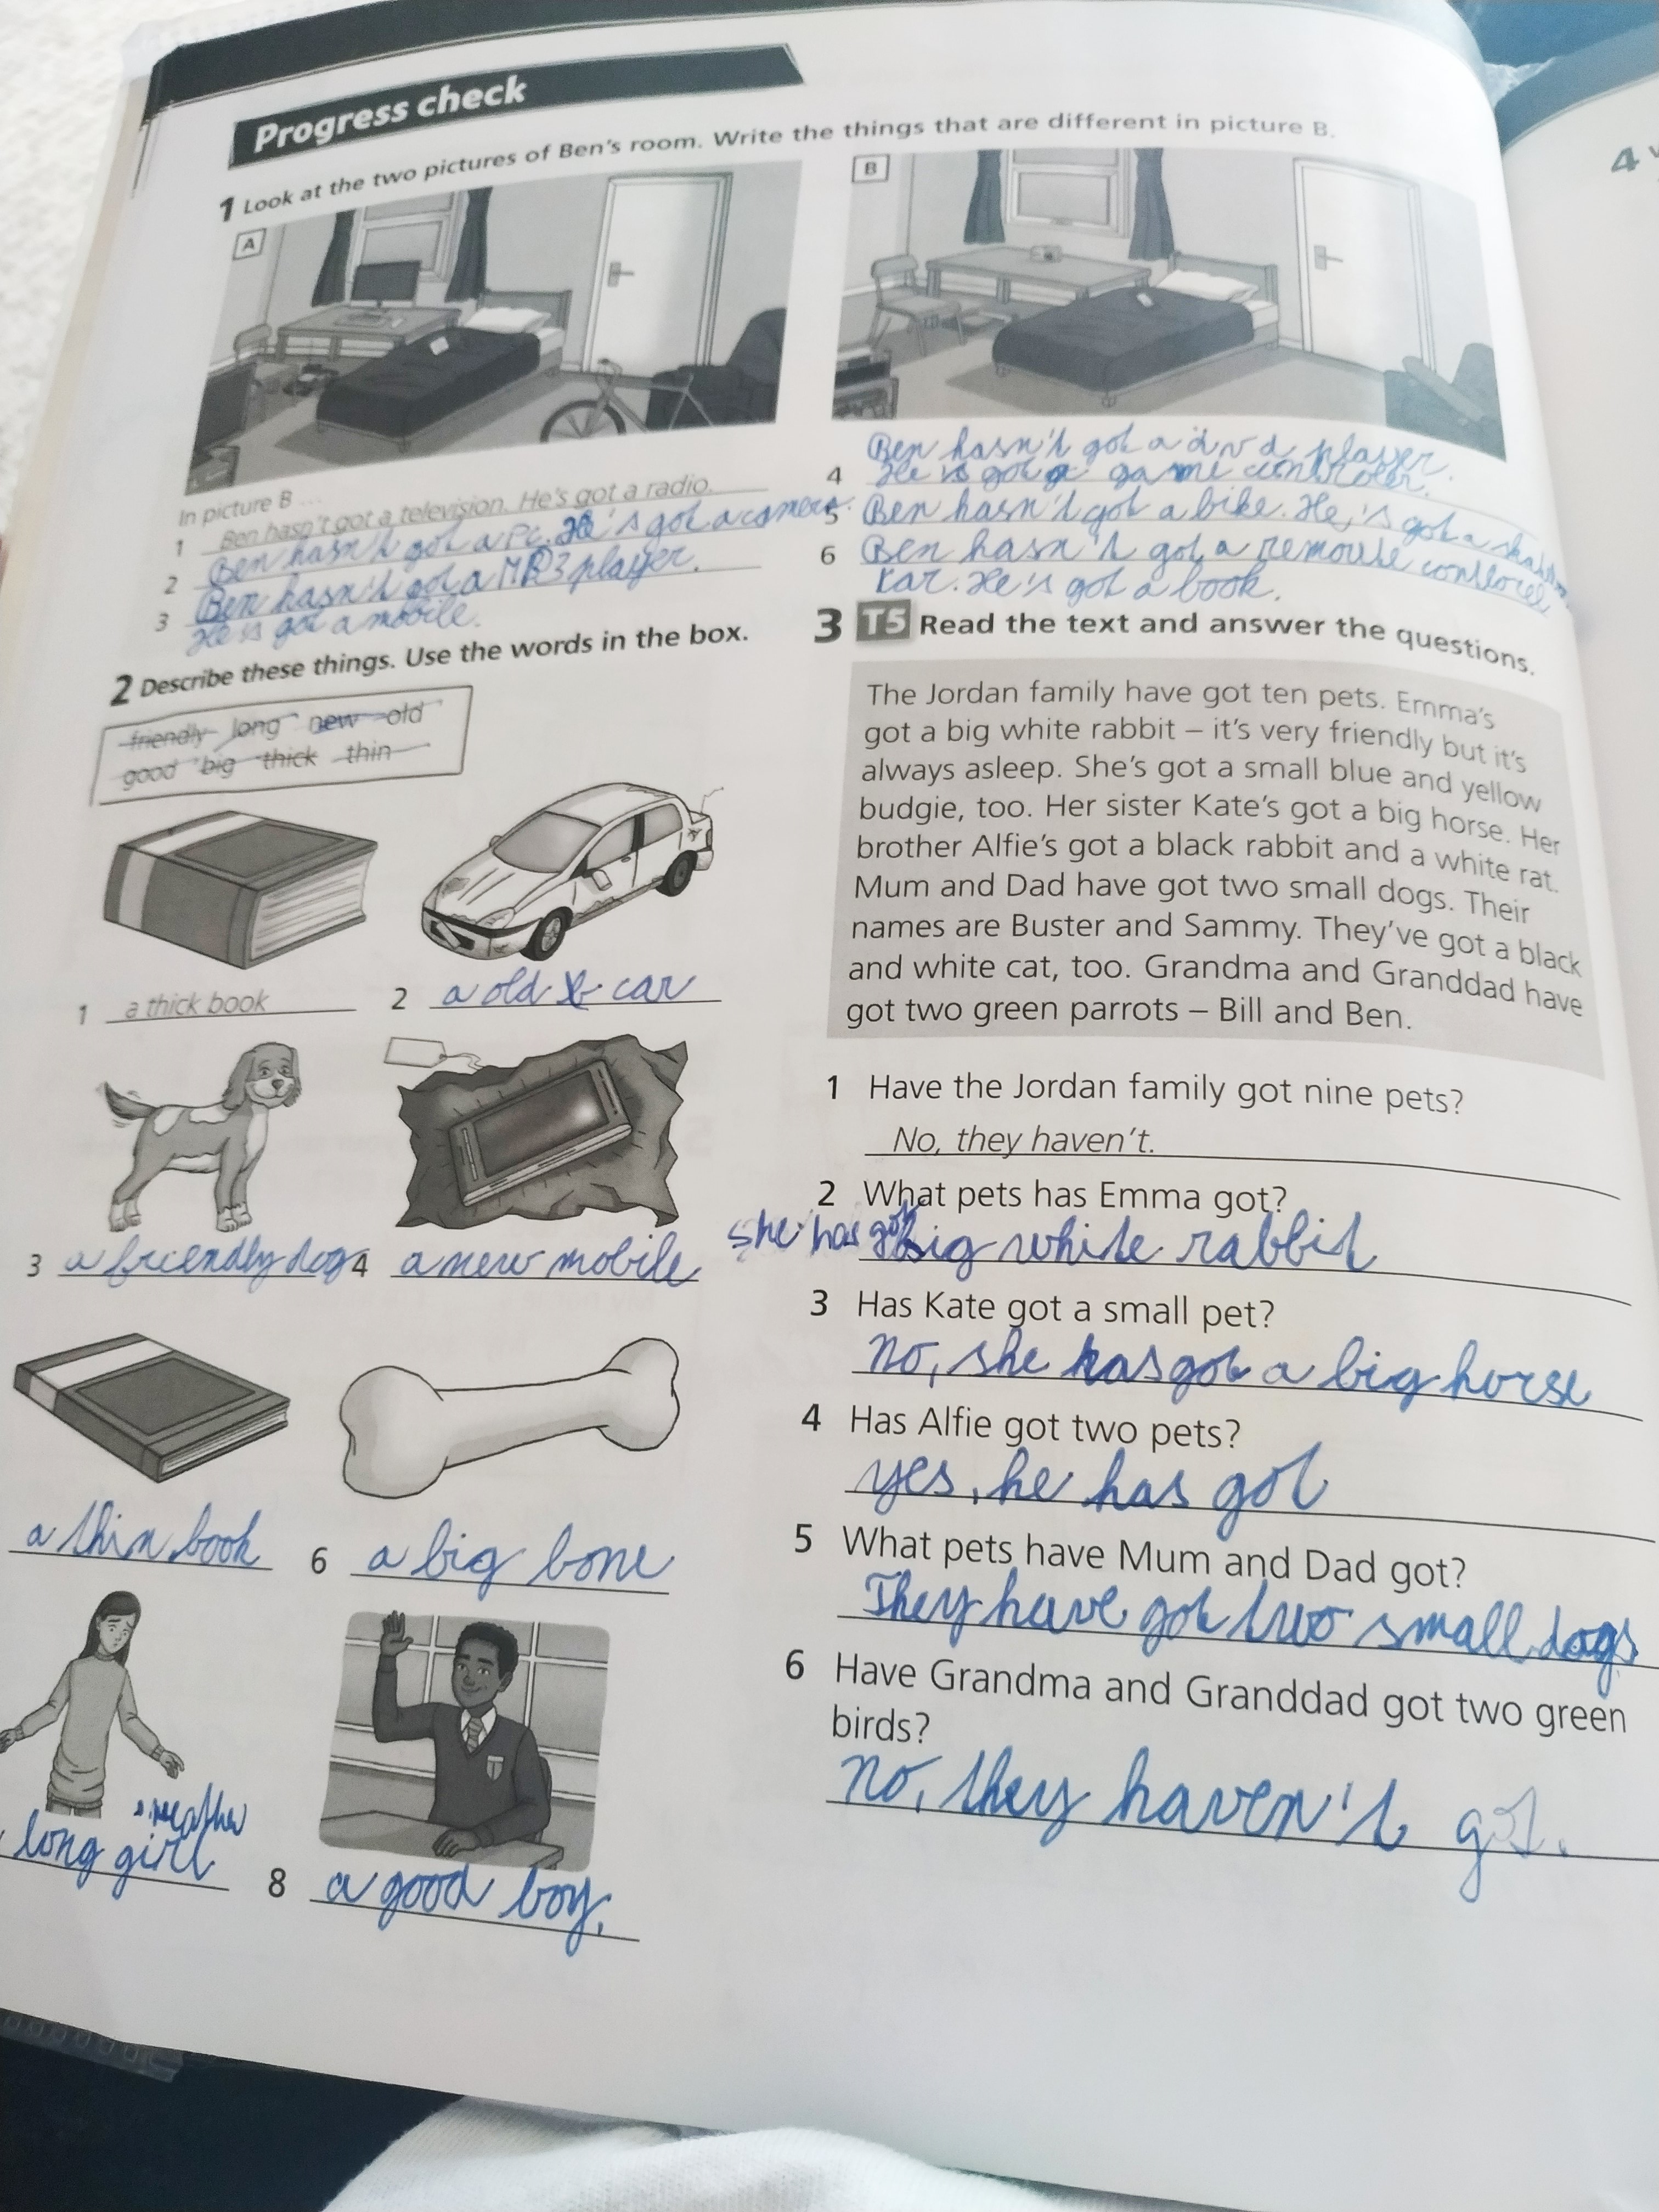 Progress check
1 Look at the two pictures of Ben's room. Write the things that are different in picture B.
A
B
In picture B ...
1 Ben hasn't got a television. He's got a radio.
2 Ben hasn't got a PC. He's got a camera.
3 Ben hasn't got a MP3 player.
He is got a mobile.
Ben hasn't got a dvd player.
4 He is got a game controler.
5 Ben hasn't got a bike. He's got a
6 Ben hasn't got a remoute
He's got a book.
2 Describe these things. Use the words in the box.
friendly long new old
good big thick thin
1 a thick book
2 a old car
3 a friendly dog
4 a new mobile
a thin book
6 a big bone
long girl
8 a good boy.
3 T5 Read the text and answer the questions.
The Jordan family have got ten pets. Emma's
got a big white rabbit – it's very friendly but it's
always asleep. She's got a small blue and yellow
budgie, too. Her sister Kate's got a big horse. Her
brother Alfie's got a black rabbit and a white rat.
Mum and Dad have got two small dogs. Their
names are Buster and Sammy. They've got a black
and white cat, too. Grandma and Granddad have
got two green parrots – Bill and Ben.
1 Have the Jordan family got nine pets?
No, they haven't.
2 What pets has Emma got?
she has got big white rabbit
3 Has Kate got a small pet?
no, she has got a big horse
4 Has Alfie got two pets?
yes, he has got
5 What pets have Mum and Dad got?
They have got two small dogs
6 Have Grandma and Granddad got two green
birds?
no, they haven't got.
4